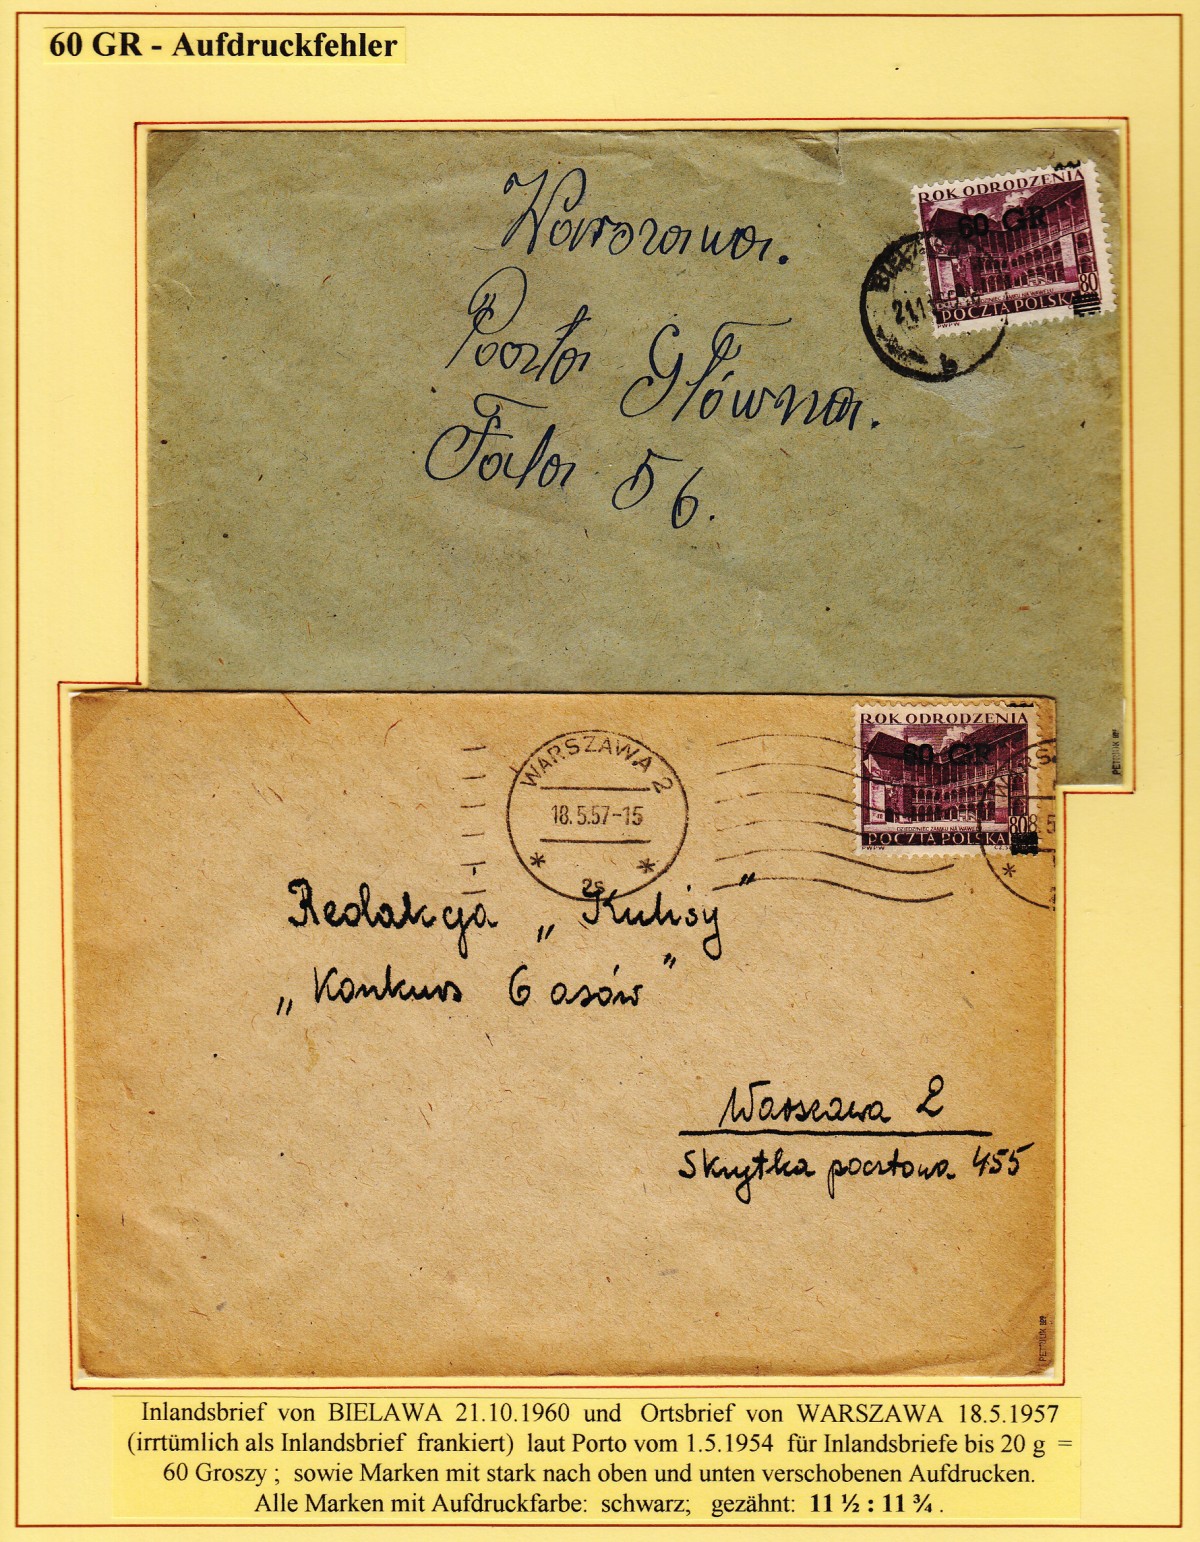 60 GR - Aufdruckfehler
Warszawa.
Poczta Główna.
Fala 56.
ROK ODRODZENIA
60 GR
80
POCZTA POLSKA
PWPW
21.1
b
WARSZAWA 2
18.5.57-15
2s
ROK ODRODZENIA
60 GR
DZIEDZINIEC ZAMKU NA WAWELU
80
POCZTA POLSKA
PWPW
Redakcja „Kulisy"
„Konkurs 6 asów"
Warszawa 2
Skrytka pocztowa 455
Inlandsbrief von BIELAWA 21.10.1960 und Ortsbrief von WARSZAWA 18.5.1957
(irrtümlich als Inlandsbrief frankiert) laut Porto vom 1.5.1954 für Inlandsbriefe bis 20 g =
60 Groszy ; sowie Marken mit stark nach oben und unten verschobenen Aufdrucken.
Alle Marken mit Aufdruckfarbe: schwarz; gezähnt: 11 ½ : 11 ¾ .